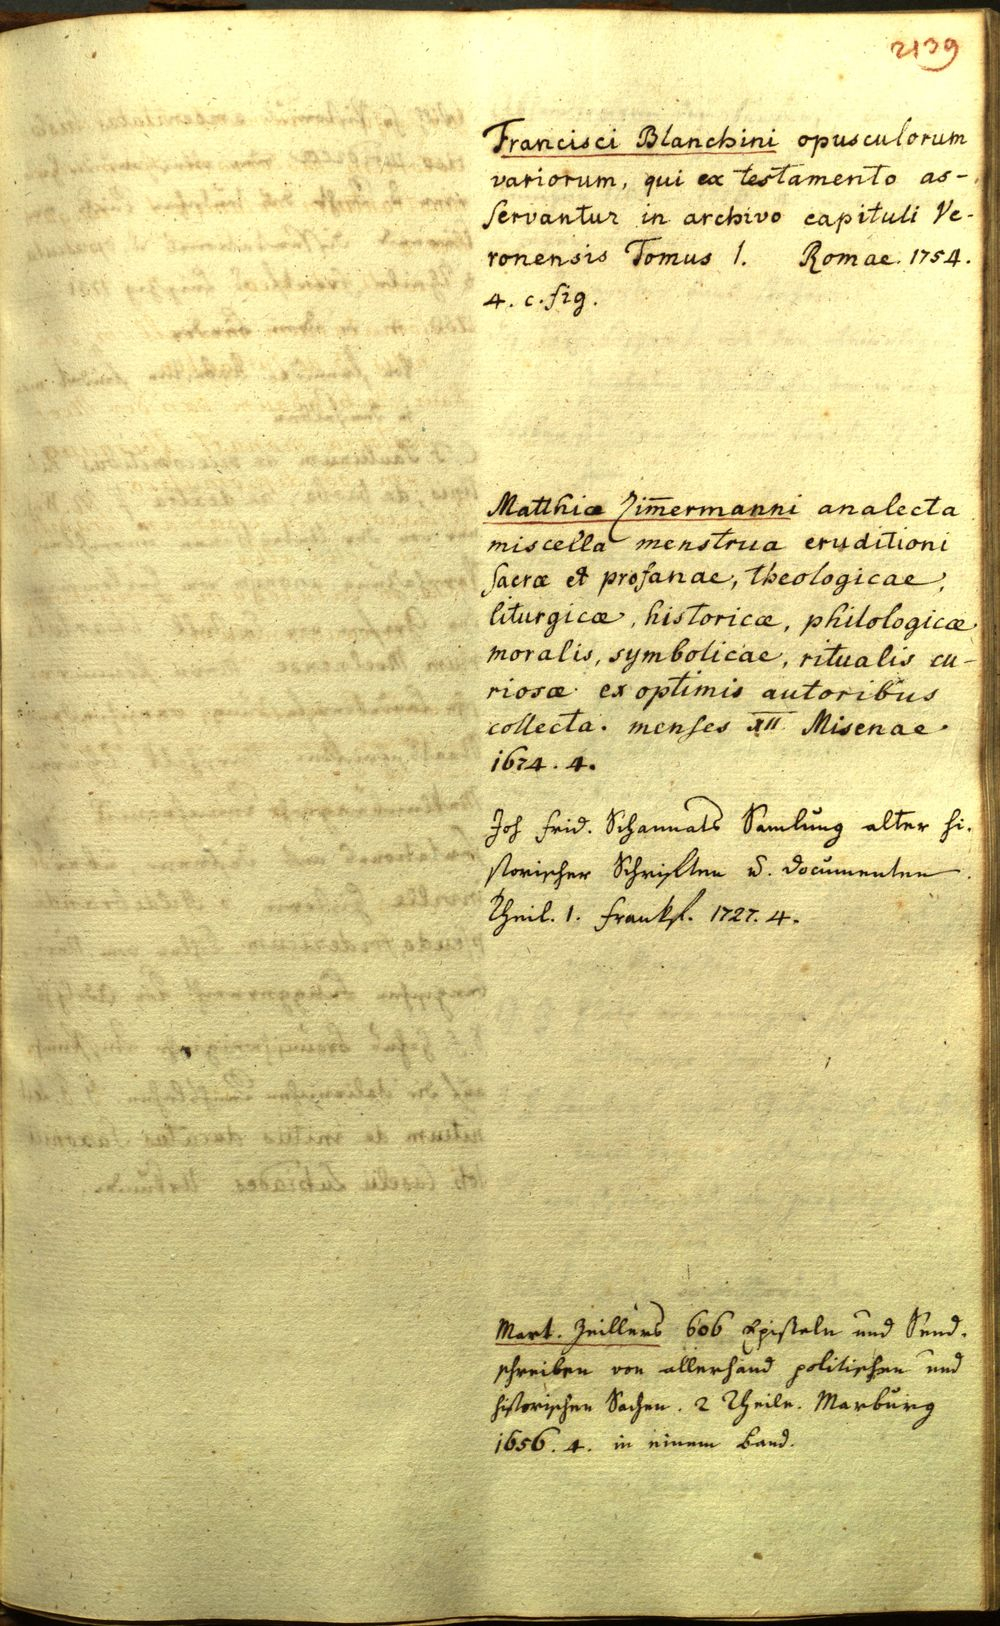 2139
Francisci Blanchini opusculorum
variorum, qui ex testamento as-
servantur in archivo capituli Ve-
ronensis Tomus 1. Romae. 1754.
4. c. fig.
Matthiæ Zim̅ermanni analecta
miscella menstrua eruditioni
sacræ et profanae, theologicae,
liturgicæ, historicæ, philologicæ
moralis, symbolicae, ritualis cu-
riosæ ex optimis autoribus
collecta. menses XII Misenae.
1674. 4.
Joh Frid. Schannats Samlung alter hi-
storischer Schrifften u. Documenten.
Theil. 1. Frankf. 1727. 4.
Mart. Zeillers 606 Episteln und Send-
schreiben von allerhand politischen und
historischen Sachen. 2 Theile. Marburg
1656. 4. in einem Band.